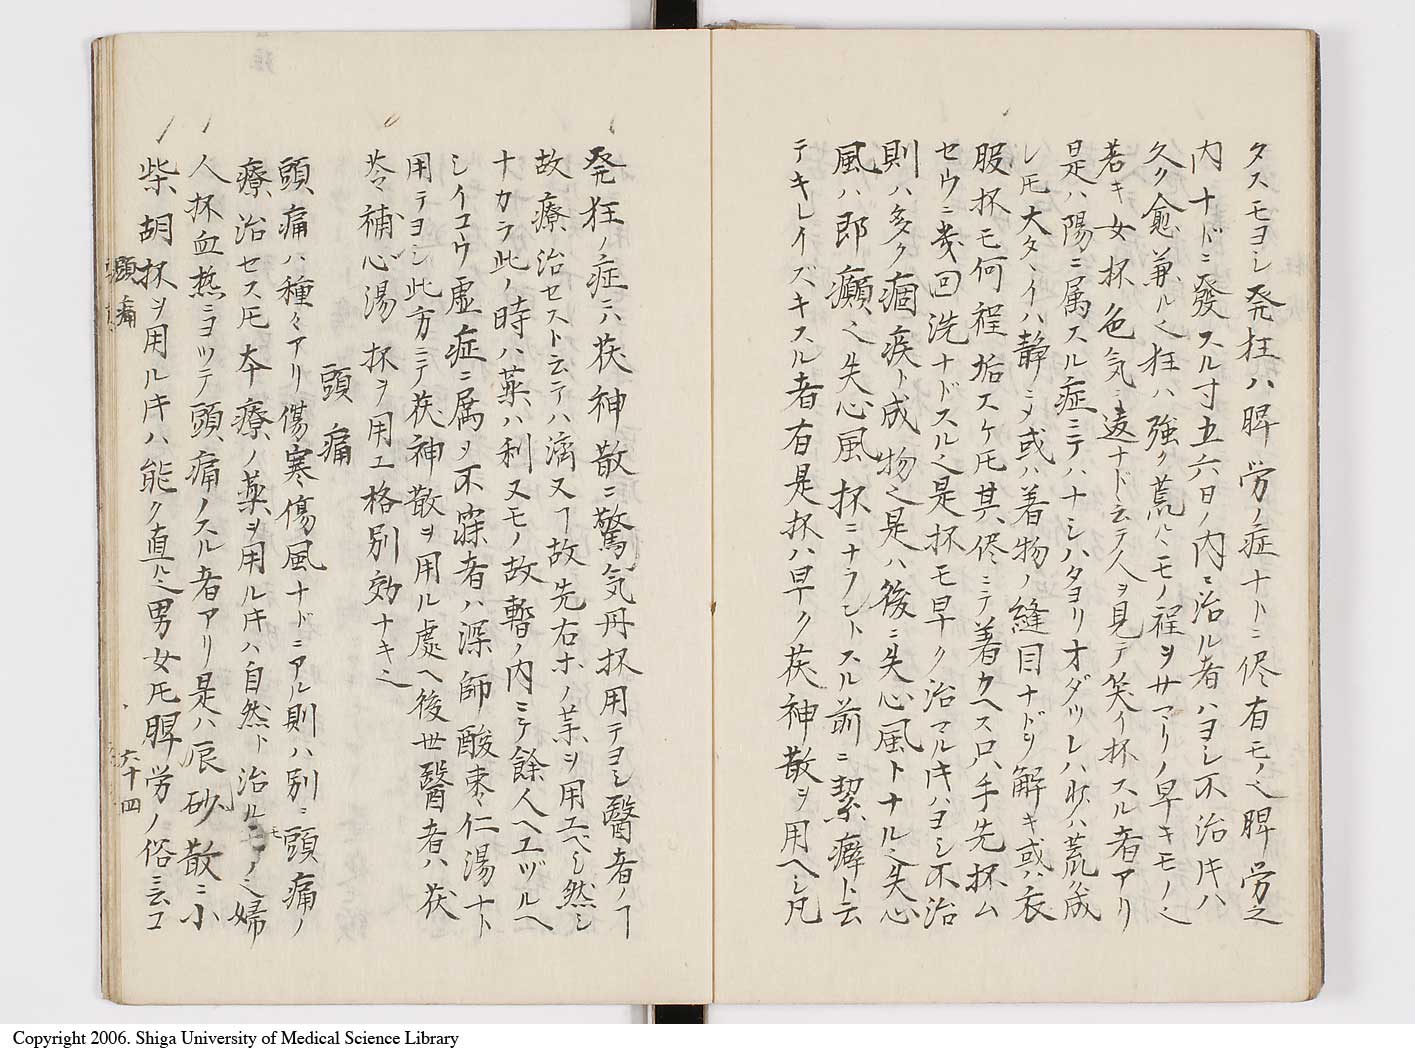 タスモヨシ発狂ハ脾労ノ症ナトニ侭有モノ也脾労之
内ナドニ發スル寸五六日ノ内ニ治ル者ハヨシ不治片ハ
久ク愈兼ル也狂ハ強ク荒ルヽモノ程ヲサマリノ早キモノ也
若キ女抔色気ニ違ナド云テ人ヲ見テ笑イ抔スル者アリ
是ハ陽ニ属スル症ニテハナシハタヨリオダツレハ狀ハ荒成
レ㡪大タヽイハ静ニメ或ハ着物ノ縫目ナドヲ解キ或ハ衣
服抔モ何程垢スケ㡪其侭ニテ着カヘス只手先抔ム
セウニ幾回洗ナドスル也是抔モ早ク治マル片ハヨシ不治
則ハ多ク痼疾ト成物也是ハ後ニ失心風トナル也失心
風ハ即癲也失心風抔ニナラントスル前ニ潔癖ト云
テキレイズキスル者有是抔ハ早ク茯神散ヲ用ヘシ凡
発狂ノ症ニハ茯神散ニ驚気丹抔用テヨシ醫者ノヿ
故療治セスト云テハ濟又ヿ故先右ホノ薬ヲ用エベシ然シ
ナカラ此ノ時ハ薬ハ利又モノ故暫ノ内ニテ餘人ヘユヅルヘ
シイコウ虚症ニ属ヲ不寐者ハ深師酸棗仁湯ナト
用テヨシ此方ニテ茯神散ヲ用ル處ヘ後世醫者ハ茯
苓補心湯抔ヲ用エ格別効ナキ也
頭痛
頭痛ハ種々アリ傷寒傷風ナドニアル則ハ別ニ頭痛ノ
療治セス㡪本療ノ薬ヲ用ル片ハ自然ト治ルモノ也婦
人抔血熱ニヨツテ頭痛ノスル者アリ是ハ辰砂散ニ小
柴胡抔ヲ用ル片ハ能ク直ル也男女㡪脾労ノ俗ニ云コ
頭痛
六十四
Copyright 2006. Shiga University of Medical Science Library